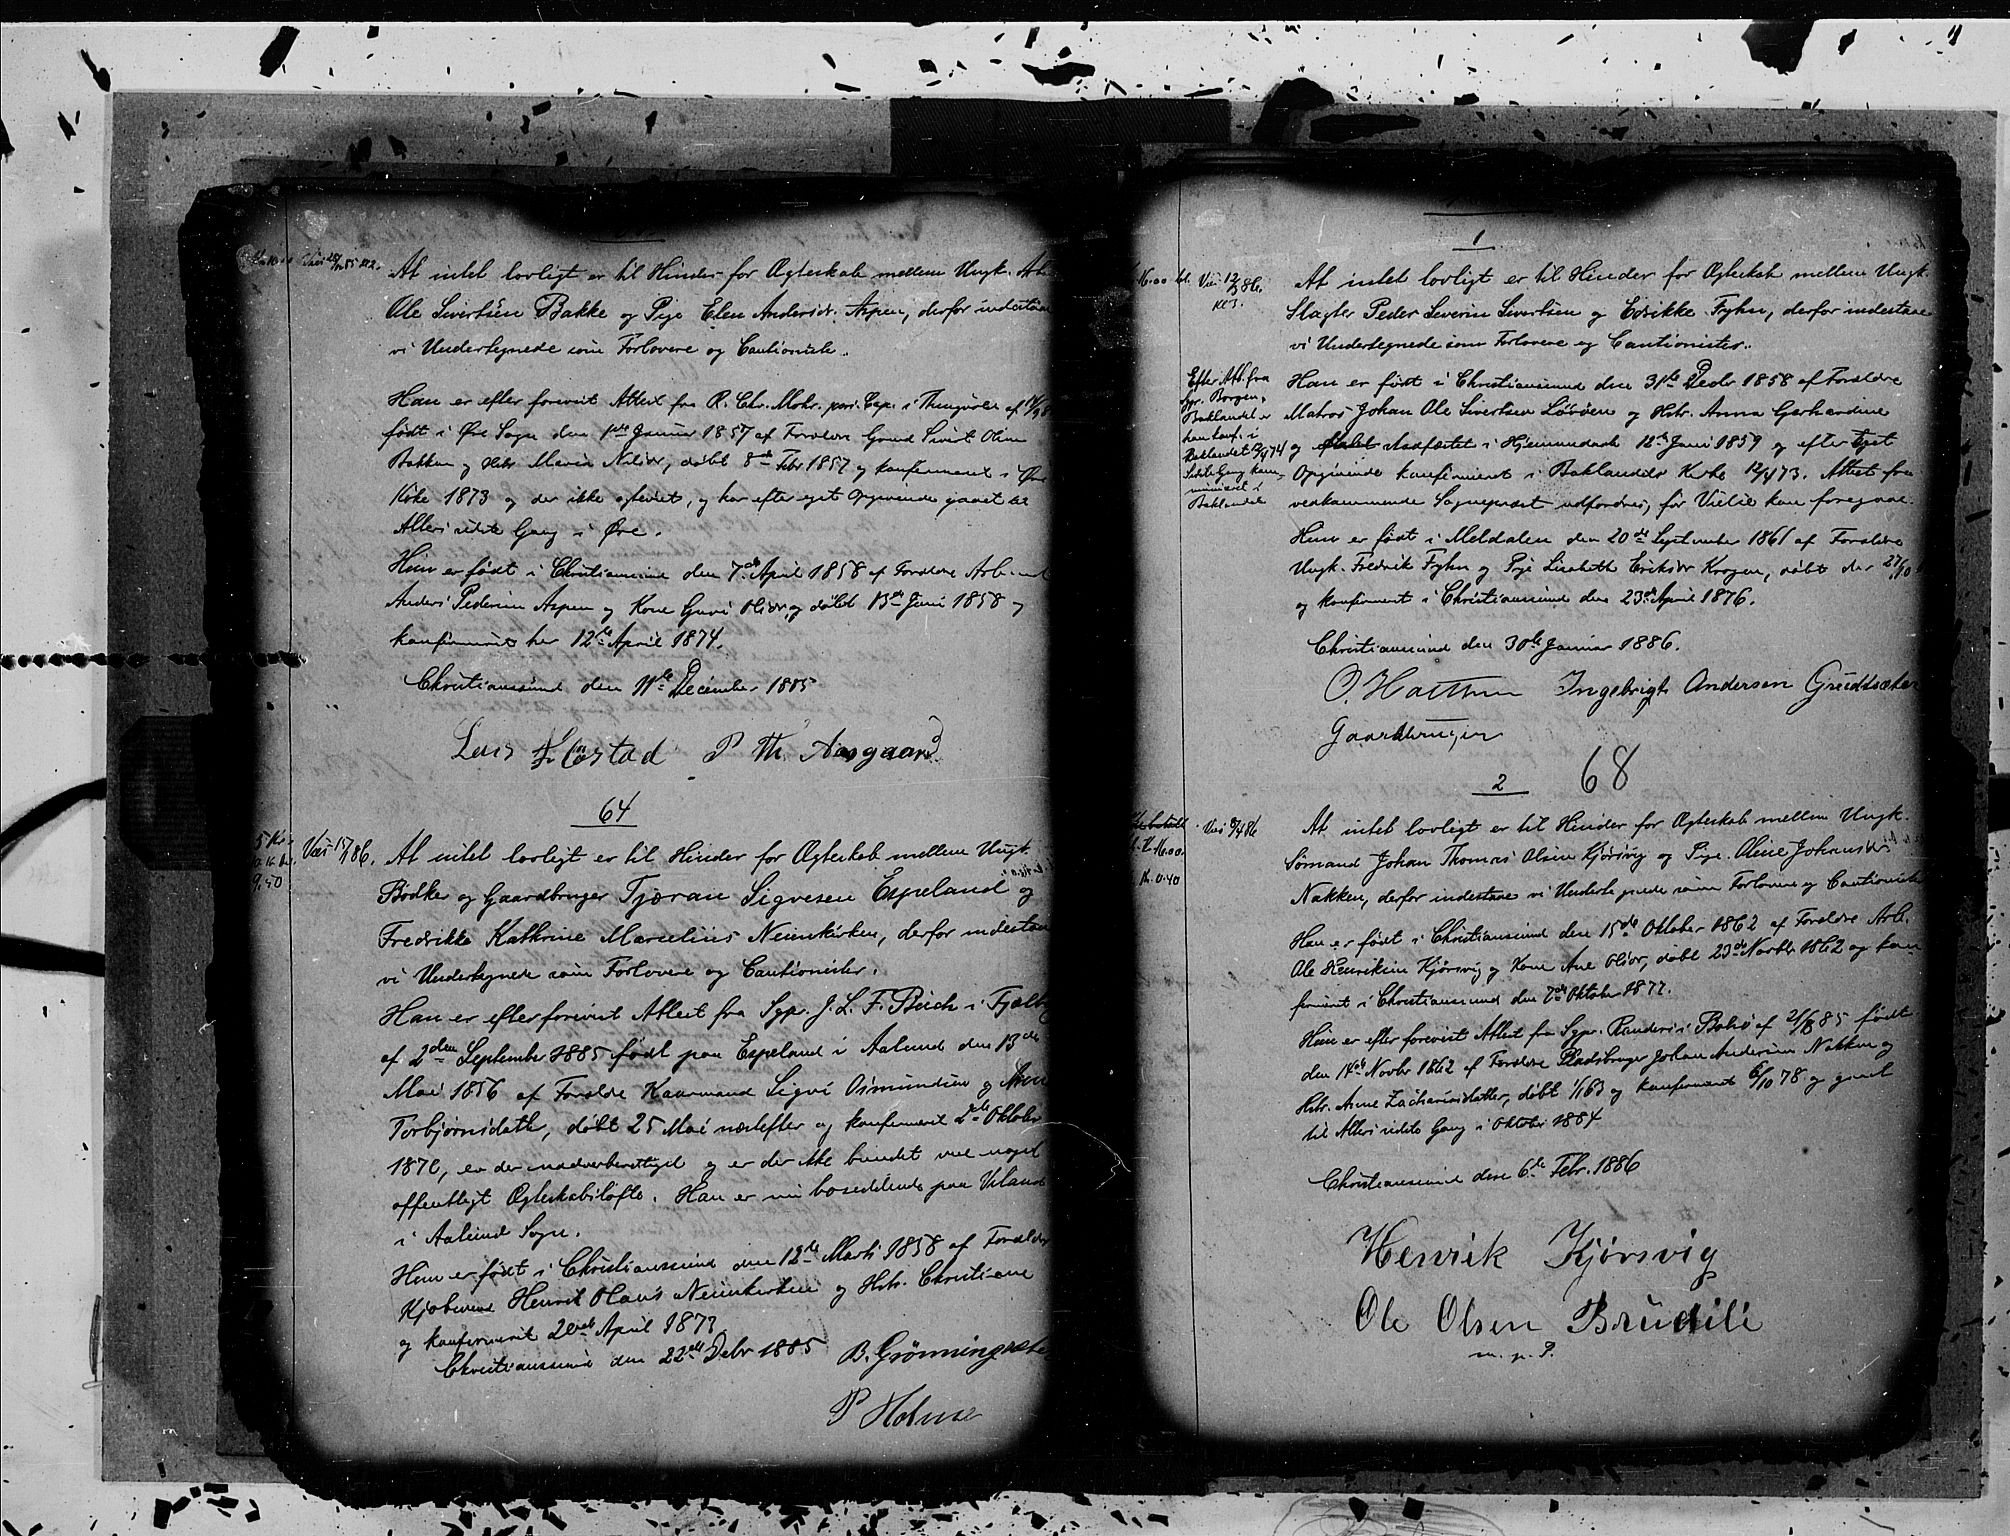 At intet lovligt er til Hinder for Ægteskab mellem Ungk. Arb.
Ole Sivertsen Bakke og Pige Elen Andersdr. Aspen, derfor indestaae
vi Undertegnede som Forlovere og Cautionister.
Han er efter forevist Attest fra R. Chr. Mohr, pers. Cap. i Thingvold af
født i Øre Sogn den 1ste Januar 1857 af Forældre Gmd Sivert Olsen
Bakken og Hstr Maren Nilsdr, døbt 8de Febr 1857 og konfirmeret i Øre
Kirke 1873 og der ikke ægteviet, og har efter eget Opgivende gaaet til
Alters sidste Gang i Øre.
Hun er født i Christianssund den 7de April 1858 af Forældre Arbmd
Anders Pedersen Aspen og Kone Guri Olsdr, og døbt 13de Juni 1858 og
konfirmeret her 12te April 1874.
Christianssund den 11te December 1885
Lars Løstad P Th. Aasgaard
64
5 Kr.
9.50
Viet 15/1 86.
At intet lovligt er til Hinder for Ægteskab mellem Ungk.
Bødker og Gaardbruger Tjæran Sigvesen Espeland og
Fredrikke Kathrine Marcelius Neuenkirken, derfor indestaae
vi Undertegnede som Forlovere og Cautionister.
Han er efter forevist Attest fra Sgpr. J. L. F. Buch i Fjælberg
af 2den September 1885 født paa Espeland i Aalund den 13de
Mai 1856 af Forældre Kaarmand Sigve Osmundsen og Anna
Torbjørnsdatter, døbt 25 Mai næstefter og konfirmeret 2de Oktober
1870, er der nadverberettiget og er der ikke bundet ved noget
offentligt Ægteskabsløfte. Han er nu bosiddende paa
i Aalund Sogn.
Hun er født i Christianssund den 12te Marts 1858 af Forældre
Kjøbmand Henrik Olaus Neuenkirken og Hstr. Christiane
og konfirmeret 20de April 1873
Christianssund den 22de Debr 1885 B. Grønningsæter
P Holme
1
Viet 12/3 86.
Kl 3.
At intet lovligt er til Hinder for Ægteskab mellem Ungk.
Slagter Peder Severin Sivertsen og Edrikke Fyhn, derfor indestaae
vi Undertegnede som Forlovere og Cautionister.
Efter Att. fra
Sgpr. Borgen,
Baklandet er
han konf. i
Baklandet
sidste Gang kom-
municeret i
Baklandet
Han er født i Christianssund den 31te Decbr 1858 af Forældre
Matros Johan Ole Sivertsen Løvøen og Hstr. Anna Gerhardine
og Stadfæstet i Hjemmedaab 12te Juni 1859 og efter eget
Opgivende konfirmeret i Baklandets Kirke 12/4 73. Attest fra
vedkommende Sogneprest udfordres, før Vielse kan foregaae.
Hun er født i Meldalen den 20de September 1861 af Forældre
Ungk. Fredrik Fyhn og Pige Lisabeth Eriksdr Krogen, døbt der 27/10
og konfirmeret i Christianssund den 23de April 1876.
Christianssund den 30te Januar 1886.
Ingebrigt Andersen Grødtsæter
Gaardbruger
68
2
Viet 9/4 86
At intet lovligt er til Hinder for Ægteskab mellem Ungk.
Sømand Johan Thomas Olsen Kjørsvig og Pige Oline Johansdr
Nakken, derfor indestaae vi Undertegnede som Forlovere og Cautionister
Han er født i Christianssund den 15de Oktober 1862 af Forældre Arb.
Ole Henriksen Kjørsvig og Kone Ane Olsdr, døbt 23de Novbr 1862 og kon-
firmeret i Christianssund den 7de Oktober 1877.
Hun er efter forevist Attest fra Sgpr. Randers i Bolsø af 21/8 85 født
den 14de Novbr 1862 af Forældre Pladsbruger Johan Andersen Nakken og
Hstr. Anne Zachariasdatter, døbt 1/1 63 og konfirmeret 6/10 78 og gaaet
til Alters sidste Gang i Oktober 1884
Christianssund den 6te Febr. 1886
Henrik Kjørsvig
Ole Olsen Brudeli
m. p. P.